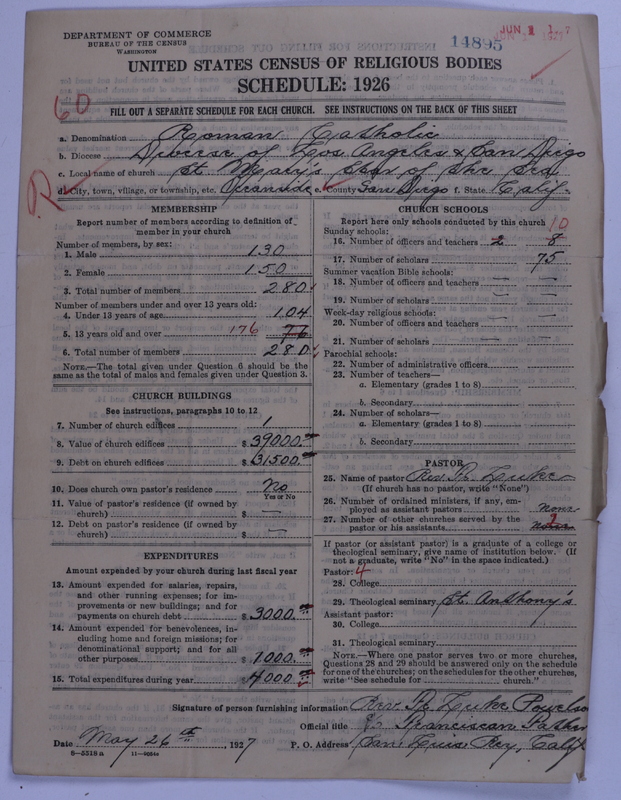 DEPARTMENT OF COMMERCE
BUREAU OF THE CENSUS
WASHINGTON
14895
JUN 1 1 . 7
UNITED STATES CENSUS OF RELIGIOUS BODIES
SCHEDULE: 1926
60
FILL OUT A SEPARATE SCHEDULE FOR EACH CHURCH. SEE INSTRUCTIONS ON THE BACK OF THIS SHEET
a. Denomination Roman Catholic
b. Diocese Diocese of Los Angeles & San Diego
c. Local name of church St. Mary's Star of the Sea
d. City, town, village, or township, etc. Oceanside e. County San Diego f. State Calif
R
MEMBERSHIP
Report number of members according to definition of member in your church
Number of members, by sex:
1. Male 130
2. Female 150
3. Total number of members 280
Number of members under and over 13 years old:
4. Under 13 years of age 104
5. 13 years old and over 176 76
6. Total number of members 280
NOTE.—The total given under Question 6 should be the same as the total of males and females given under Question 3.
CHURCH BUILDINGS
See instructions, paragraphs 10 to 12
7. Number of church edifices 1
8. Value of church edifices $ 39000.
9. Debt on church edifices $ 31500.
10. Does church own pastor's residence No
Yes or No
11. Value of pastor's residence (if owned by church) $ —
12. Debt on pastor's residence (if owned by church) $ —
EXPENDITURES
Amount expended by your church during last fiscal year
13. Amount expended for salaries, repairs, and other running expenses; for improvements or new buildings; and for payments on church debt $ 3000.
14. Amount expended for benevolences, including home and foreign missions; for denominational support; and for all other purposes $ 1000.
15. Total expenditures during year $ 4000
CHURCH SCHOOLS
Report here only schools conducted by this church
Sunday schools:
10
16. Number of officers and teachers 2 8
17. Number of scholars 75
Summer vacation Bible schools:
18. Number of officers and teachers — —
19. Number of scholars — —
Week-day religious schools:
20. Number of officers and teachers — —
21. Number of scholars — —
Parochial schools:
22. Number of administrative officers
23. Number of teachers—
a. Elementary (grades 1 to 8)
b. Secondary
24. Number of scholars—
a. Elementary (grades 1 to 8)
b. Secondary
PASTOR
25. Name of pastor Rev. Fr. Luke
(If church has no pastor, write "None")
26. Number of ordained ministers, if any, employed as assistant pastors none
27. Number of other churches served by the pastor or his assistants none
If pastor (or assistant pastor) is a graduate of a college or theological seminary, give name of institution below. (If not a graduate, write "No" in the space indicated.)
Pastor: 4
28. College
29. Theological seminary St. Anthony's
Assistant pastor:
30. College
31. Theological seminary
NOTE.—Where one pastor serves two or more churches, Questions 28 and 29 should be answered only on the schedule for one of the churches; on the schedules for the other churches, write "See schedule for church."
Signature of person furnishing information Rev. Fr. Luke
Official title Franciscan Father
Date May 26th 1927 P. O. Address San Luis Rey, Calif
8-5518a